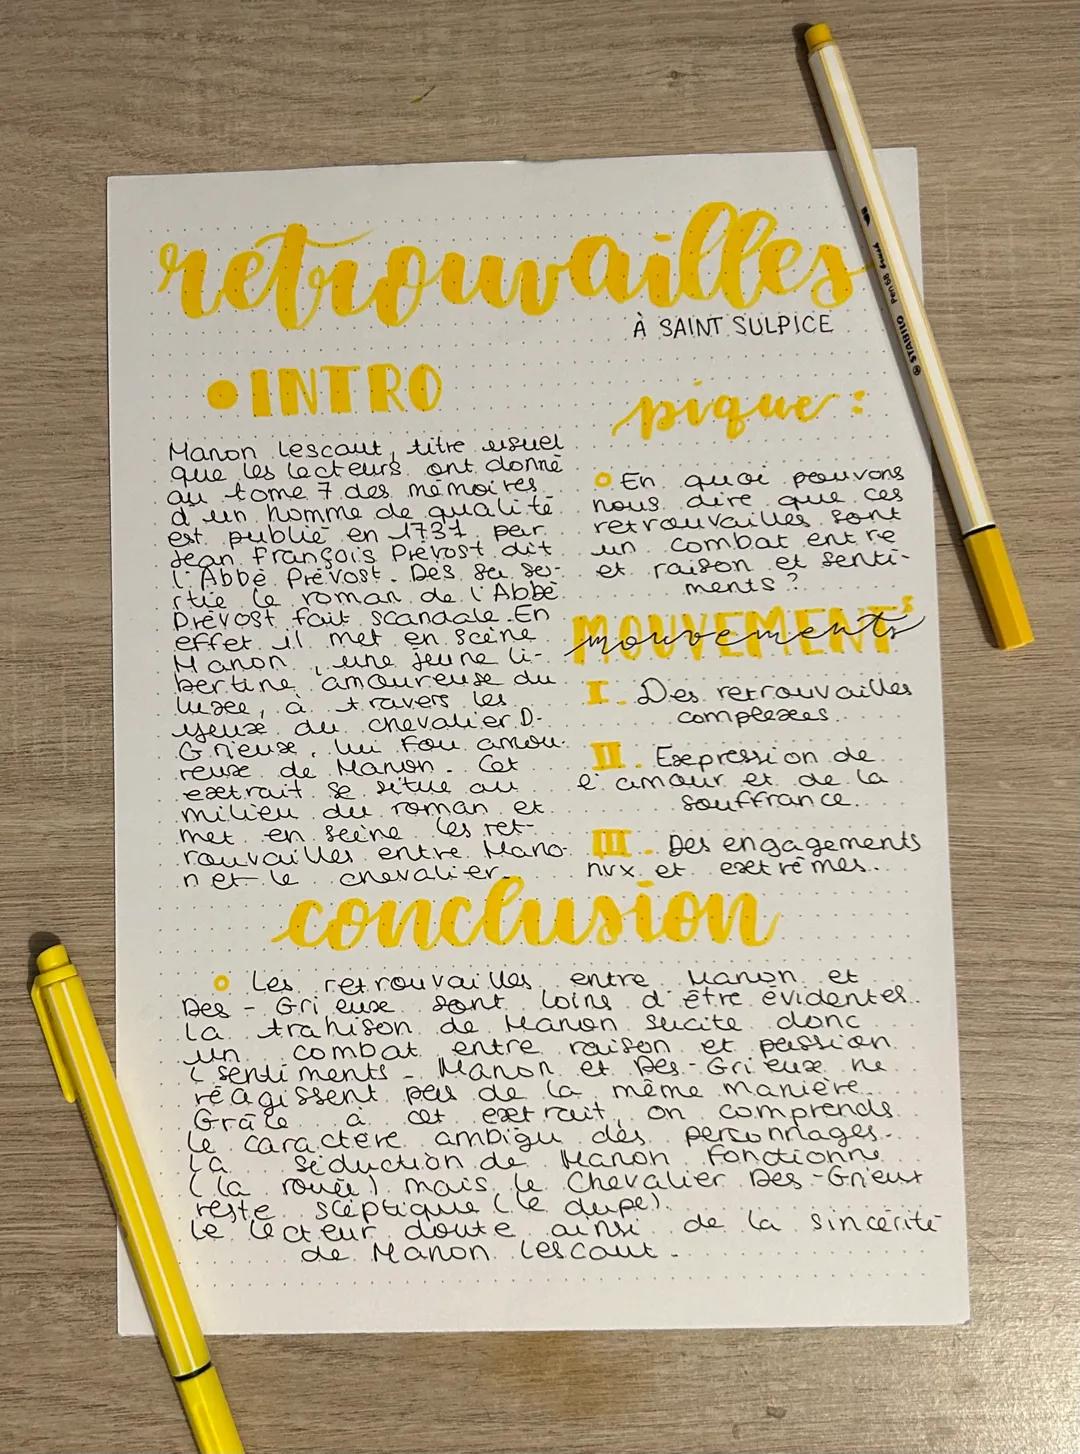 retrouvailles
À SAINT SULPICE
INTRO
Manon Lescaut, titre usuel
que les lecteurs ont donné
au tome 7 des mémoires
d'un homme de qualité
est publié en 1731 par
Jean François Prévost dit
l'Abbé Prévost. Dès sa so-
rtie le roman de l'Abbé
Prévost fait scandale. En
effet il met en scène
Manon, une jeune li-
bertine amoureuse du
luxe, à travers les
yeux du chevalier D-
Grieux, lui fou amou-
reux de Manon. Cet
extrait se situe au
milieu du roman et
met en scène les ret-
rouvailles entre Mano-
n et le chevalier.
pique :
En quoi pouvons
nous dire que ces
retrouvailles sont
un combat entre
et raison et senti-
ments ?
MOUVEMENTS
mouvements
I. Des retrouvailles
complexes.
II. Expression de
l'amour et de la
souffrance.
III. Des engagements
nvx et extrêmes.
conclusion
Les retrouvailles entre Manon et
Des-Grieux sont loins d'être évidentes.
La trahison de Manon sucite donc
un combat entre raison et passion
/ sentiments. Manon et Des-Grieux ne
réagissent pas de la même manière.
Grâce à cet extrait, on comprends
le caractère ambigu des personnages.
La séduction de Manon fonctionne
(la rouée) mais le Chevalier Des-Grieux
reste sceptique (le dupe).
Le lecteur doute ainsi de la sincérité
de Manon Lescaut.
STABILO Pen 68 brush